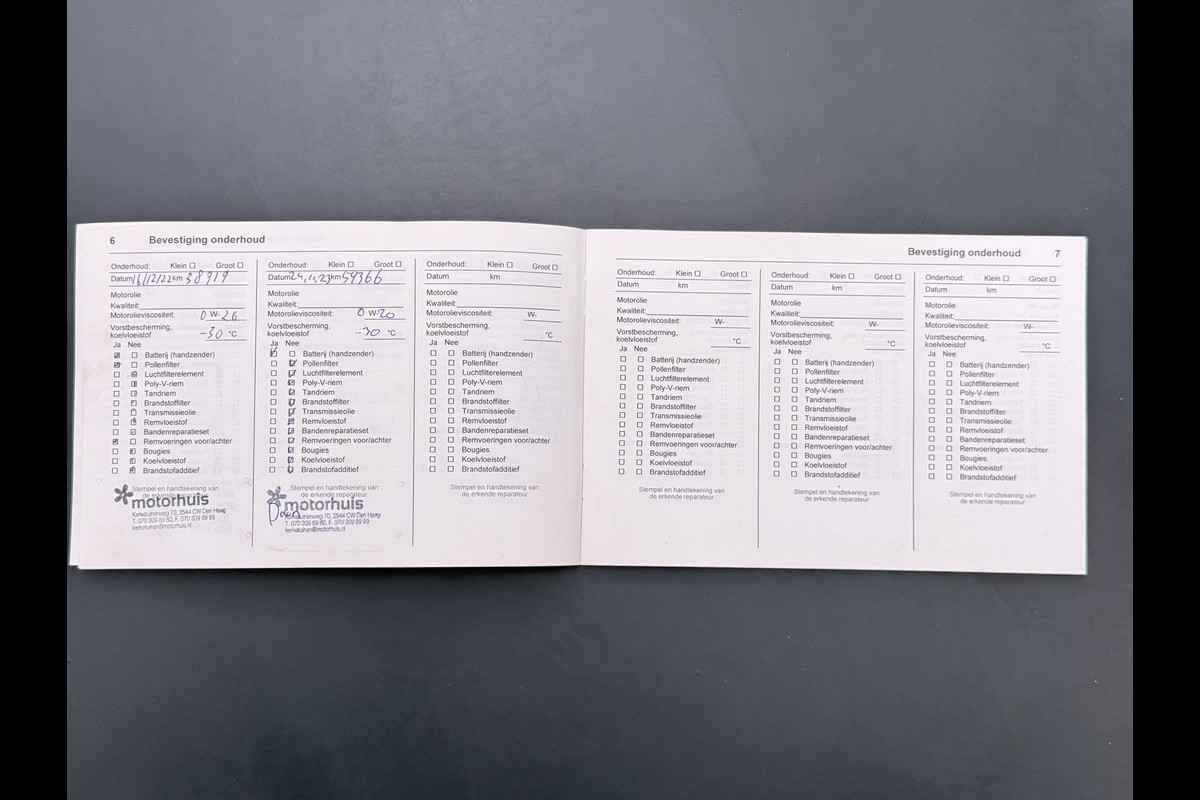 6 Bevestiging onderhoud
Onderhoud: Klein Groot
Datum 16/12/22 km 38919
Motorolie
Kwaliteit:
Motorolieviscositeit: 0 W-26
Vorstbescherming,
koelvloeistof -30 °C
Ja Nee
Batterij (handzender)
Pollenfilter
Luchtfilterelement
Poly-V-riem
Tandriem
Brandstoffilter
Transmissieolie
Remvloeistof
Bandenreparatieset
Remvoeringen voor/achter
Bougies
Koelvloeistof
Brandstofadditief
Stempel en handtekening van
de erkende reparateur
motorhuis
Kerketuinenweg 70, 2544 CW Den Haag
T. 070 309 69 80, F. 070 309 89 99
kerketuinen@motorhuis.nl
Onderhoud: Klein Groot
Datum 24,11,23 km 54366
Motorolie
Kwaliteit:
Motorolieviscositeit: 0 W-20
Vorstbescherming,
koelvloeistof -30 °C
Ja Nee
Batterij (handzender)
Pollenfilter
Luchtfilterelement
Poly-V-riem
Tandriem
Brandstoffilter
Transmissieolie
Remvloeistof
Bandenreparatieset
Remvoeringen voor/achter
Bougies
Koelvloeistof
Brandstofadditief
Stempel en handtekening van
de erkende reparateur
motorhuis
Kerketuinenweg 70, 2544 CW Den Haag
T. 070 309 69 80, F. 070 309 89 99
kerketuinen@motorhuis.nl
Onderhoud: Klein Groot
Datum km
Motorolie
Kwaliteit:
Motorolieviscositeit: W-
Vorstbescherming,
koelvloeistof °C
Ja Nee
Batterij (handzender)
Pollenfilter
Luchtfilterelement
Poly-V-riem
Tandriem
Brandstoffilter
Transmissieolie
Remvloeistof
Bandenreparatieset
Remvoeringen voor/achter
Bougies
Koelvloeistof
Brandstofadditief
Stempel en handtekening van
de erkende reparateur
Bevestiging onderhoud 7
Onderhoud: Klein Groot
Datum km
Motorolie
Kwaliteit:
Motorolieviscositeit: W-
Vorstbescherming,
koelvloeistof °C
Ja Nee
Batterij (handzender)
Pollenfilter
Luchtfilterelement
Poly-V-riem
Tandriem
Brandstoffilter
Transmissieolie
Remvloeistof
Bandenreparatieset
Remvoeringen voor/achter
Bougies
Koelvloeistof
Brandstofadditief
Stempel en handtekening van
de erkende reparateur
Onderhoud: Klein Groot
Datum km
Motorolie
Kwaliteit:
Motorolieviscositeit: W-
Vorstbescherming,
koelvloeistof °C
Ja Nee
Batterij (handzender)
Pollenfilter
Luchtfilterelement
Poly-V-riem
Tandriem
Brandstoffilter
Transmissieolie
Remvloeistof
Bandenreparatieset
Remvoeringen voor/achter
Bougies
Koelvloeistof
Brandstofadditief
Stempel en handtekening van
de erkende reparateur
Onderhoud: Klein Groot
Datum km
Motorolie
Kwaliteit:
Motorolieviscositeit: W-
Vorstbescherming,
koelvloeistof °C
Ja Nee
Batterij (handzender)
Pollenfilter
Luchtfilterelement
Poly-V-riem
Tandriem
Brandstoffilter
Transmissieolie
Remvloeistof
Bandenreparatieset
Remvoeringen voor/achter
Bougies
Koelvloeistof
Brandstofadditief
Stempel en handtekening van
de erkende reparateur